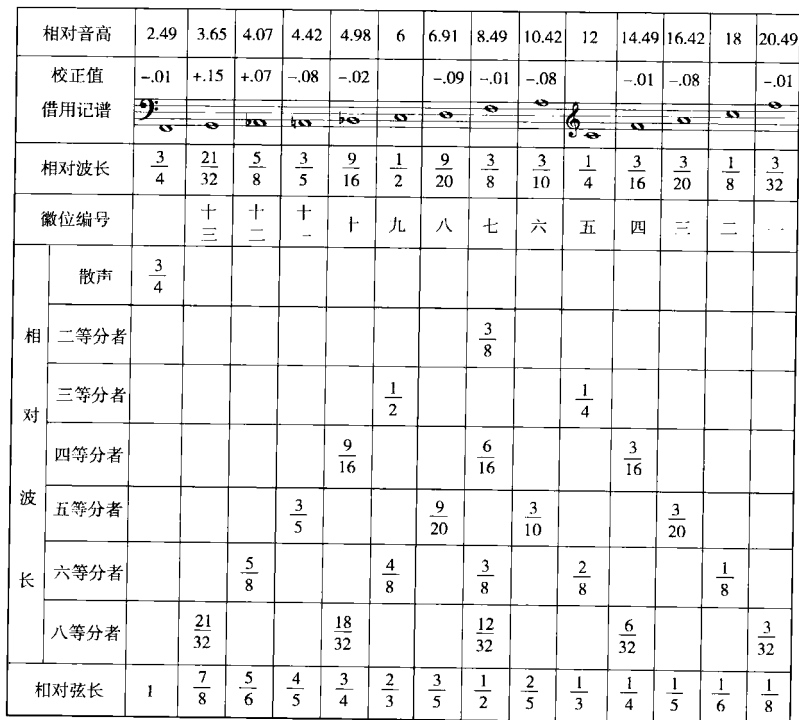 相对音高 2.49 3.65 4.07 4.42 4.98 6 6.91 8.49 10.42 12 14.49 16.42 18 20.49
校正值 -.01 +.15 +.07 -.08 -.02 -.09 -.01 -.08 -.01 -.08 -.01
借用记谱
相对波长 3/4 21/32 5/8 3/5 9/16 1/2 9/20 3/8 3/10 1/4 3/16 3/20 1/8 3/32
徽位编号 十三 十二 十一 十 九 八 七 六 五 四 三 二 一
相对波长
散声 3/4
二等分者 3/8
三等分者 1/2 1/4
四等分者 9/16 6/16 3/16
五等分者 3/5 9/20 3/10 3/20
六等分者 5/8 4/8 3/8 2/8 1/8
八等分者 21/32 18/32 12/32 6/32 3/32
相对弦长 1 7/8 5/6 4/5 3/4 2/3 3/5 1/2 2/5 1/3 1/4 1/5 1/6 1/8